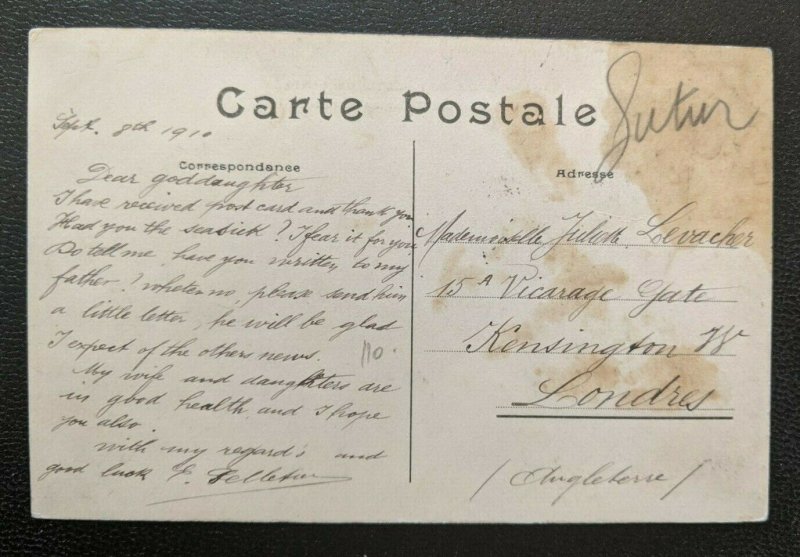 Carte Postale
Sept. 8th 1910
Correspondance
Dear goddaughter
I have received post card and thank you
Had you the seasick? I fear it for you
Do tell me, have you written to my
father? wheter no, please send him
a little letter, he will be glad
I expect of the others news.
110.
My wife and daughters are
in good health and I hope
you also.
with my regard's and
good luck
Adresse
Mademoiselle Juliette Levacher
15 A Vicarage Gate
Kensington W
Londres
(Angleterre)